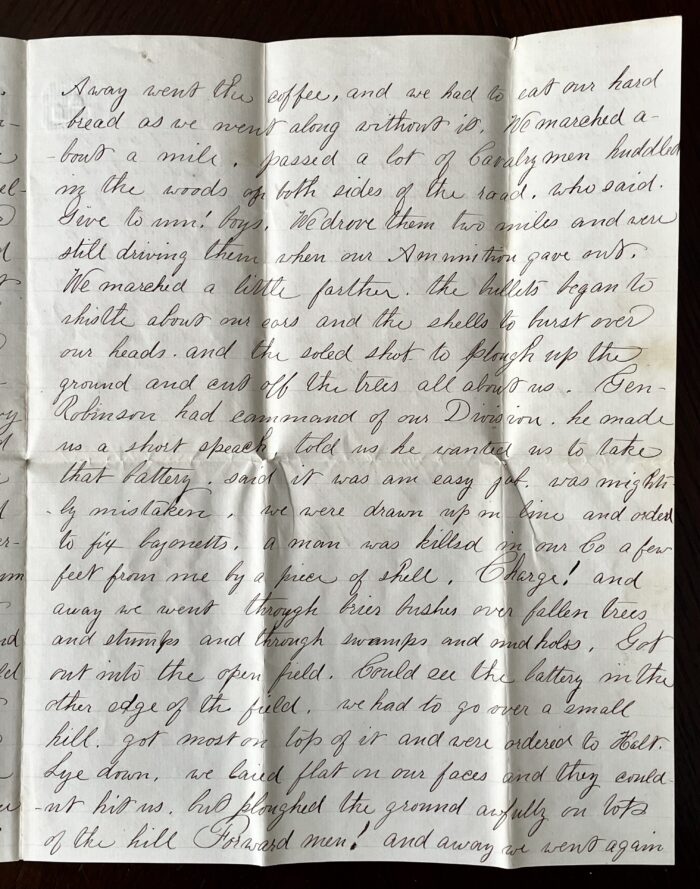 Away went the coffee, and we had to eat our hard
-bread as we went along without it. We marched a-
-bout a mile. passed a lot of Cavalrymen huddled
in the woods on both sides of the road. who said.
Give to um! boys. We drove them two miles and were
still driving them when our Amunition gave out.
We marched a little farther. the bullets began to
whistle about our ears and the shells to burst over
our heads. and the soled shot to plough up the
ground and cut off the trees all about us. Gen-
Robinson had command of our Division. he made
us a short speach told us he wanted us to take
that battery. said it was am easy job. was might-
-ly mistaken. we were drawn up in line and orded
to fix bayonetts. a man was killed in our Co a few
feet from me by a piece of shell. Charge! and
away we went through brier bushes over fallen trees
and stumps and through swamps and mud holes. Got
out into the open field. Could see the battery in the
other edge of the field. we had to go over a small
hill. got most on top of it and were ordered to Halt.
Lye down. we laied flat on our faces and they could-
-nt hit us. but ploughed the ground awfully on top
of the hill Forward men! and away we went again